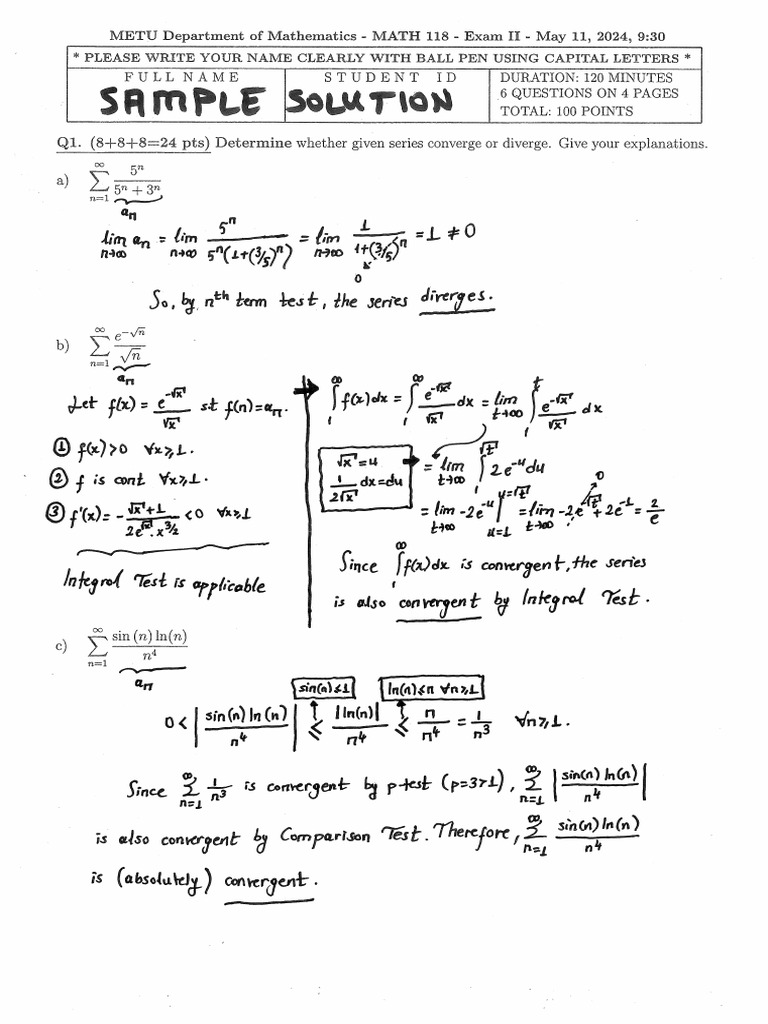 METU Department of Mathematics - MATH 118 - Exam II - May 11, 2024, 9:30
* PLEASE WRITE YOUR NAME CLEARLY WITH BALL PEN USING CAPITAL LETTERS *
FULL NAME STUDENT ID DURATION: 120 MINUTES
SAMPLE SOLUTION 6 QUESTIONS ON 4 PAGES
TOTAL: 100 POINTS
Q1. (8+8+8=24 pts) Determine whether given series converge or diverge. Give your explanations.
a) ∑_{n=1}^{∞} 5^n / (5^n + 3^n)
a_n
lim_{n→∞} a_n = lim_{n→∞} 5^n / (5^n(1+(3/5)^n)) = lim_{n→∞} 1 / (1+(3/5)^n) = 1 ≠ 0
0
So, by n^th term test, the series diverges.
b) ∑_{n=1}^{∞} e^{-√n} / √n
a_n
Let f(x) = e^{-√x} / √x s.t f(n)=a_n.
① f(x)>0 ∀x≥1.
② f is cont ∀x≥1.
③ f'(x) = - (√x+1) / (2e^{√x}.x^{3/2}) <0 ∀x≥1
Integral Test is applicable
∫_1^∞ f(x)dx = ∫_1^∞ e^{-√x}/√x dx = lim_{t→∞} ∫_1^t e^{-√x}/√x dx
√x = u
1/(2√x) dx=du
= lim_{t→∞} ∫_1^{√t} 2e^{-u}du
0
= lim_{t→∞} -2e^{-u} |_{u=1}^{u=√t} = lim_{t→∞} -2e^{-√t} + 2e^{-1} = 2/e
Since ∫_1^∞ f(x)dx is convergent, the series
is also convergent by Integral Test.
c) ∑_{n=1}^{∞} sin (n) ln(n) / n^4
a_n
sin(n)≤1 ln(n)≤n ∀n≥1
0 < |sin(n) ln(n) / n^4| ≤ |ln(n)| / n^4 ≤ n / n^4 = 1 / n^3 ∀n≥1.
Since ∑_{n=1}^{∞} 1/n^3 is convergent by p-test (p=3>1), ∑_{n=1}^{∞} |sin(n) ln(n) / n^4|
is also convergent by Comparison Test. Therefore, ∑_{n=1}^{∞} sin(n) ln(n) / n^4
is (absolutely) convergent.